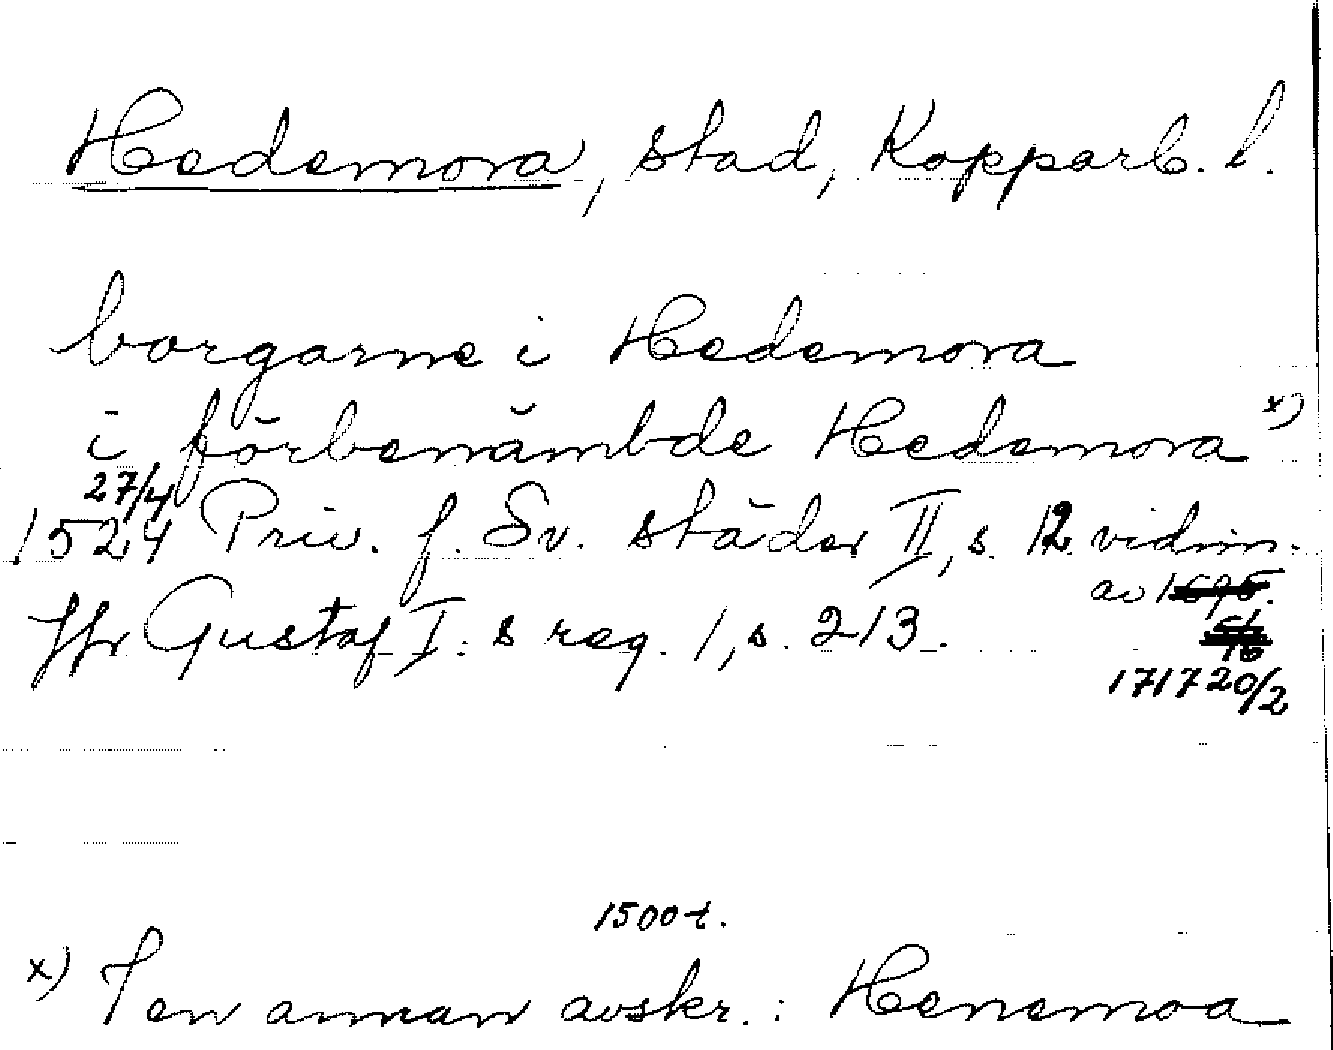 Hedemora, stad, Kopparb. l.
borgarne i Hedemora
i förbenämbde Hedemora x)
27/4
1524 Priv. f. Sv. städer II, s. 12 vidim.
av
Jfr Gustaf I:s reg. 1, s. 213.
1717 20/2
1500-t.
x) I en annan avskr.: Henemoa